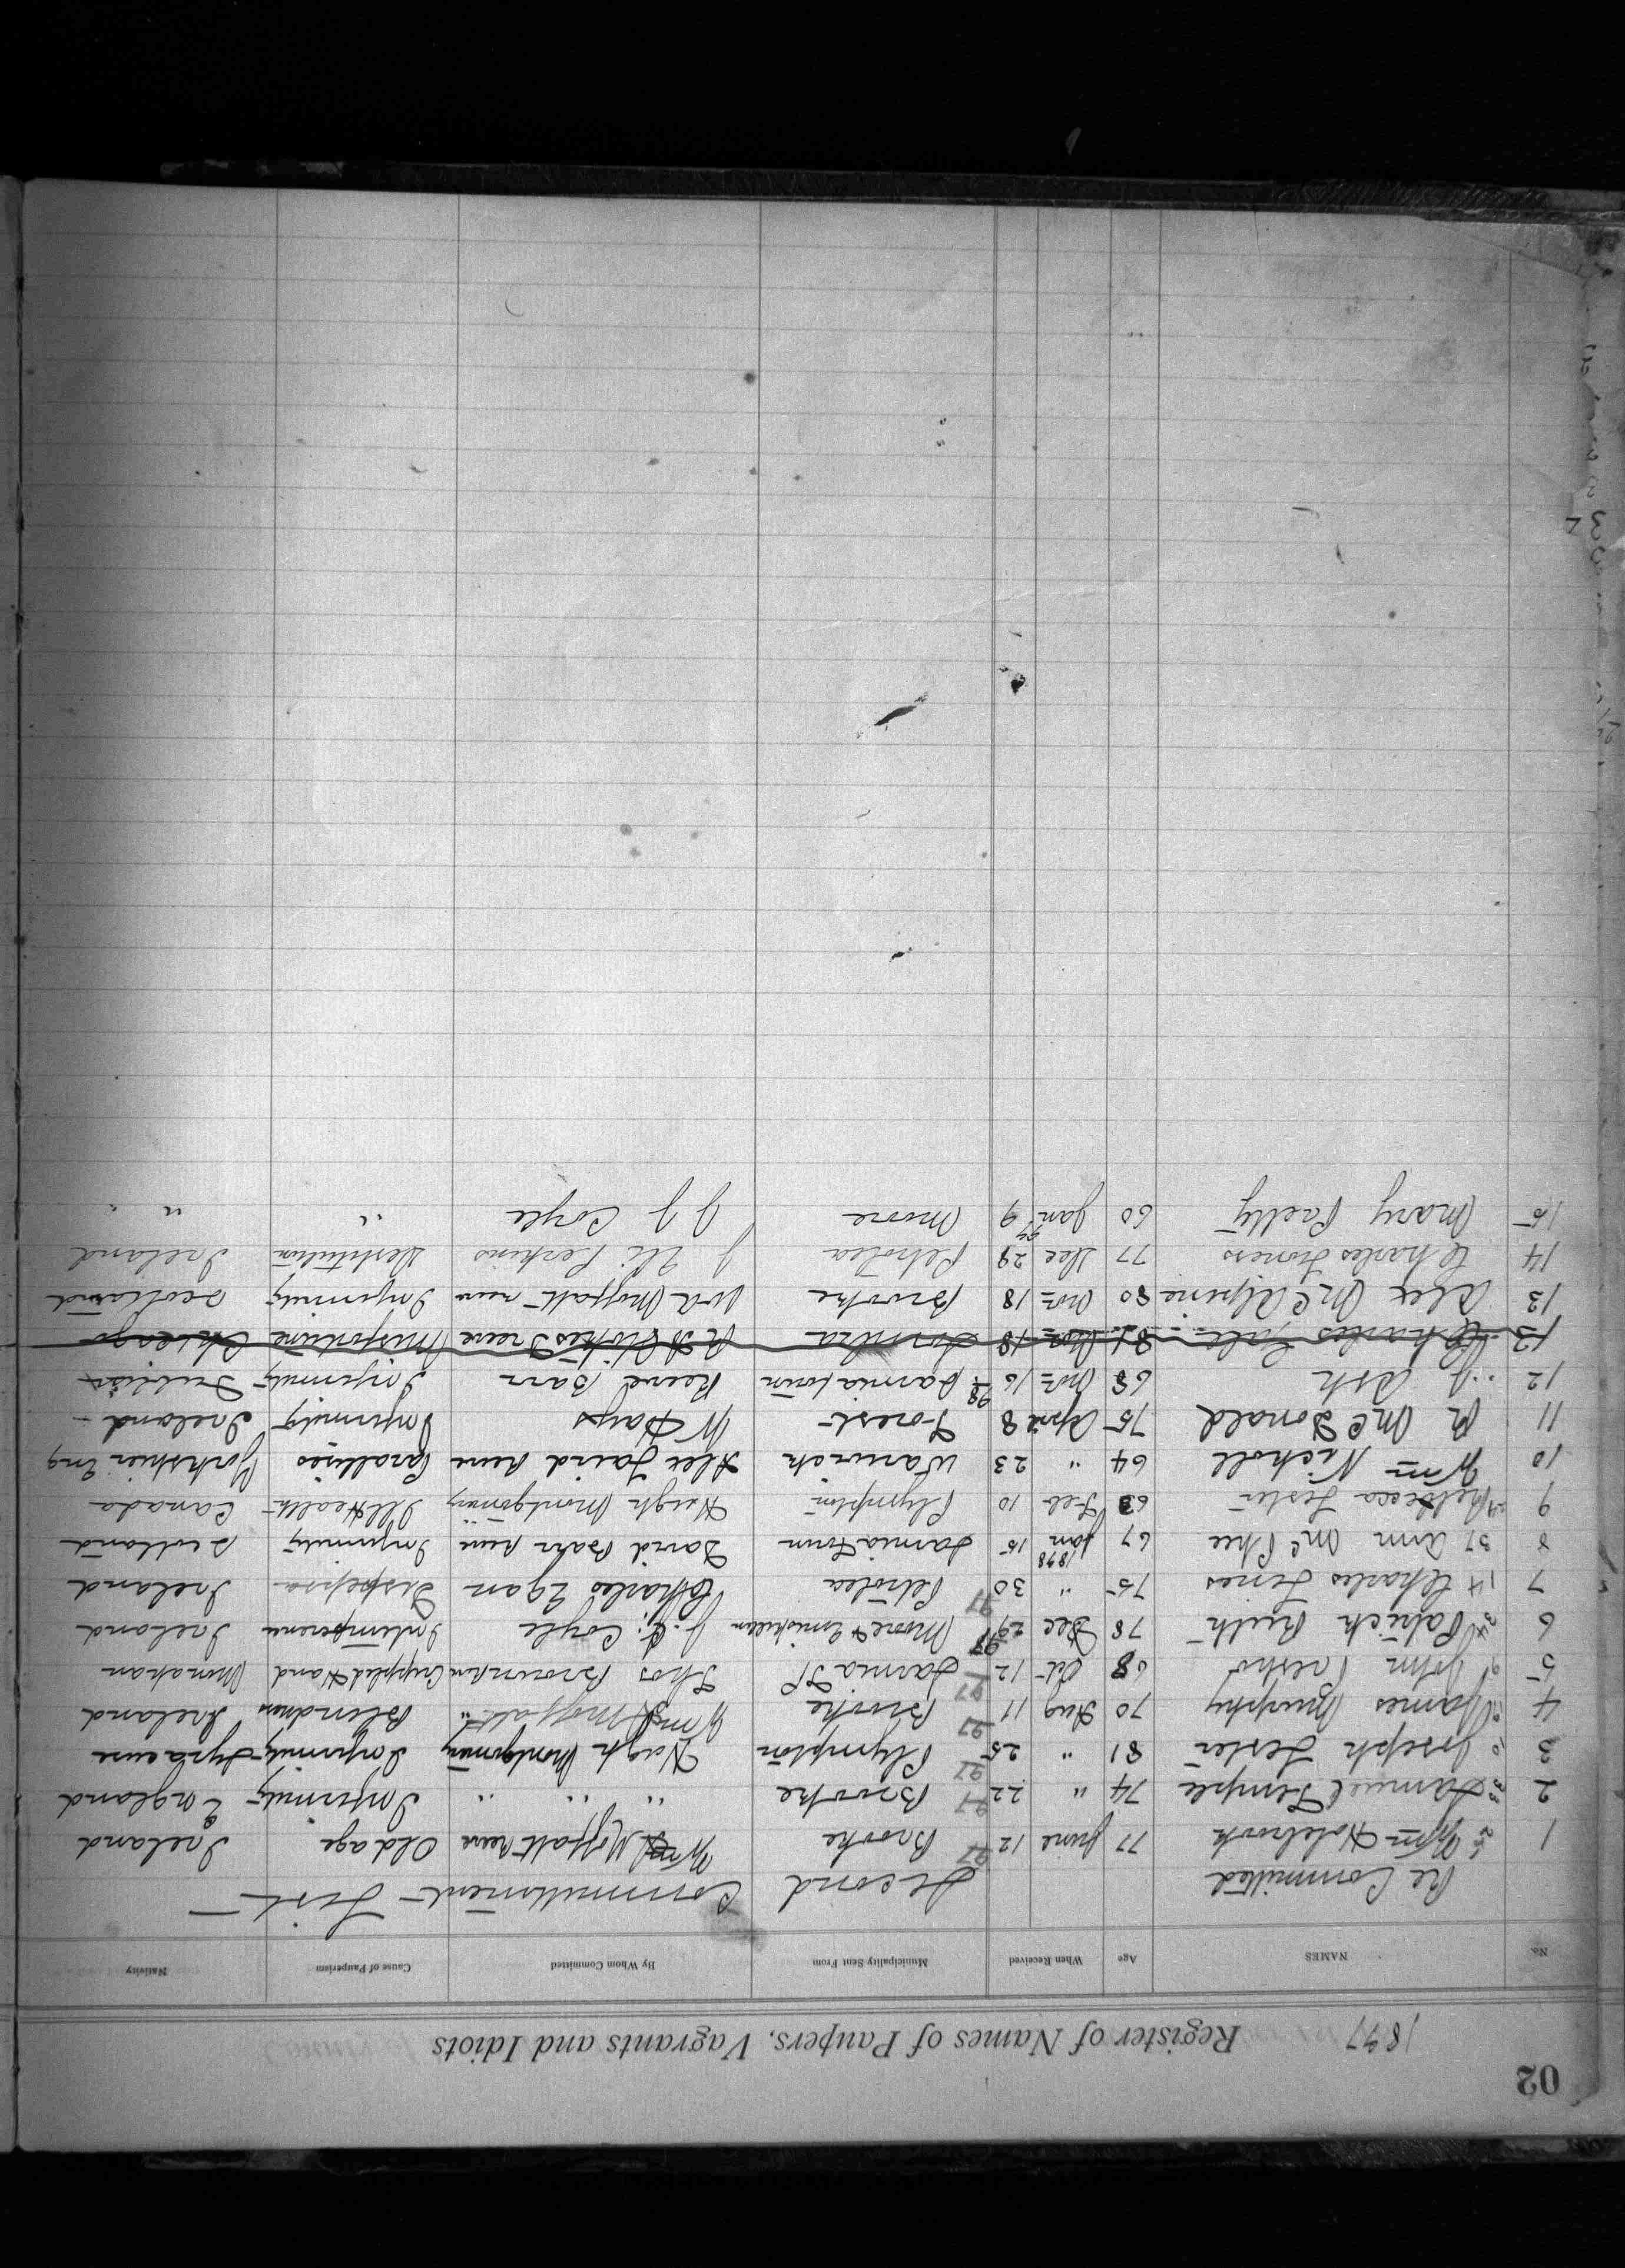 02
1897 Register of Names of Paupers, Vagrants and Idiots
No. NAMES Age When Received Municipality Sent From By Whom Committed Cause of Pauperism Nativity
Re Committed Second Commitment List
1 Wm Holebrook 77 June 12 97 Brooke Wm Moffatt reeve Old age Ireland
2 Samuel Temple 74 " 22 97 Brooke " " " Infirmity England
3 Joseph Lester 81 " 25 97 Plympton Hugh Montgomery Infirmity
4 James Murphy 70 Aug 11 97 Brooke Wm Moffatt " Blindness Ireland
5 John Presho 68 Oct 12 97 Sarnia Tp Thos Brown Crippled Hand Monahan
6 Patrick Ruth 78 Dec 29 97 Moore & Enniskillen J. J. Coyle Intemperence Ireland
7 14 Charles Fines 75 " 30 97 Petrolea Charles Egan Dispepsia Ireland
8 37 Ann McPhee 67 Jan 1898 15 Sarnia Town David Barr reeve Infirmity Scotland
9 Rebecca Lester 63 Feb 10 Plympton Hugh Montgomery Ill Health Canada
10 Wm Nicholl 64 " 23 Warwick Alex Laird Reeve Paralisies Yorkshier Eng
11 R McDonald 75 April 8 Forest W Hays Infirmity Ireland
12 J. Ash 68 Nov 16 98 Sarnia town Reeve Barr Infirmity
13 Charles 81 Nov 18 Sombra Reeve Misfortune Chicago
13 Alex McAlpine 80 Nov 18 Brooke Wm Moffatt reeve Infirmity Scotland
14 Charles Finess 77 Dec 29 Petrolea J Eli Perkins Destitution Ireland
15 Mary Reilly 60 Jan 9 Moore J J Coyle " "